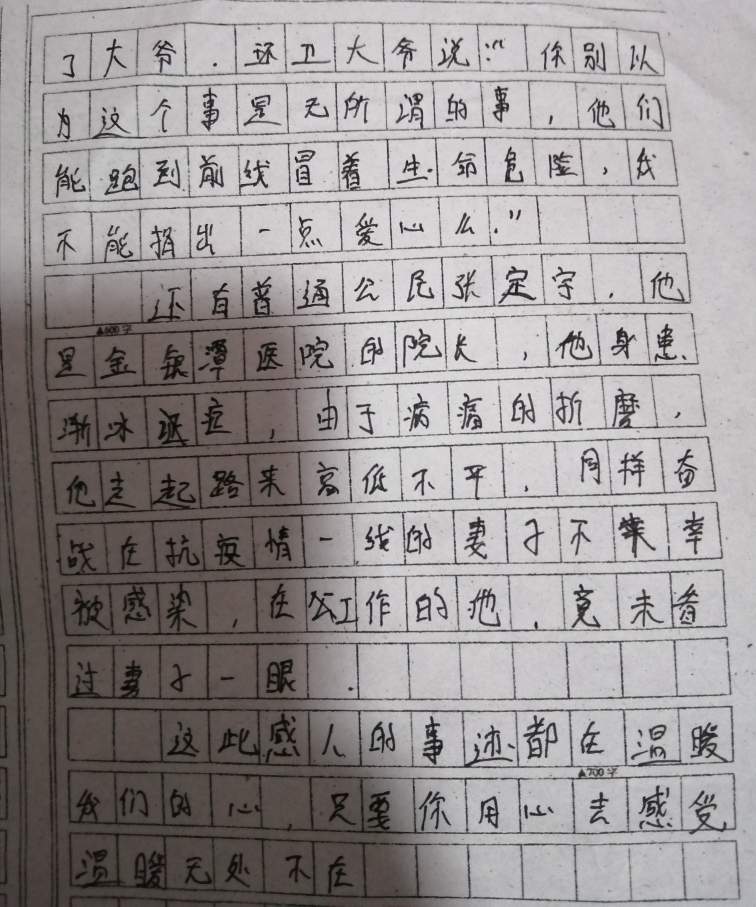 了大爷.环卫大爷说:"你别以
为这个事是无所谓的事,他们
能跑到前线冒着生命危险,我
不能捐出一点爱心么."
还有普通公民张定宇.他
▲600字
是金银潭医院的院长,他身患
渐冻症,由于病痛的折磨,
他走起路来高低不平.同样奋
战在抗疫情一线的妻子不幸
被感染,在公工作的他.竟未看
过妻子一眼.
这此感人的事迹都在温暖
▲700字
我们的心,只要你用心去感受
温暖无处不在